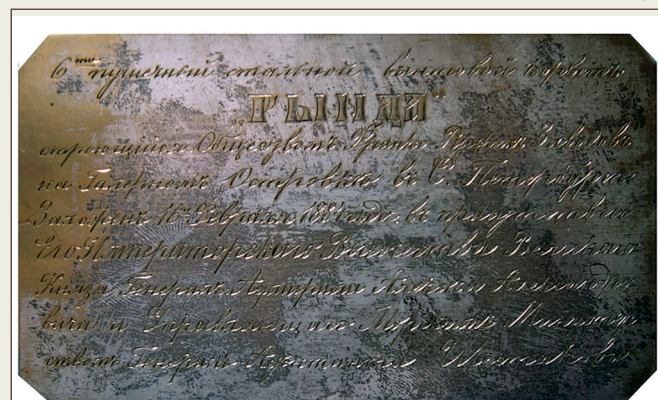 6ти пушечный стальной винтовой корветъ
„РЫНДА"
строющійся Обществомъ Франко Русскихъ Заводовъ
на Галерномъ Островкѣ въ С. Петербургѣ
Заложенъ Февраля въ присутствіи
Его Императорскаго Высочества Великаго
Князя Генералъ Адмирала Алексѣя Александро
вича и Управляющаго Морскимъ Министер
ствомъ Генералъ Адъютанта Шестакова